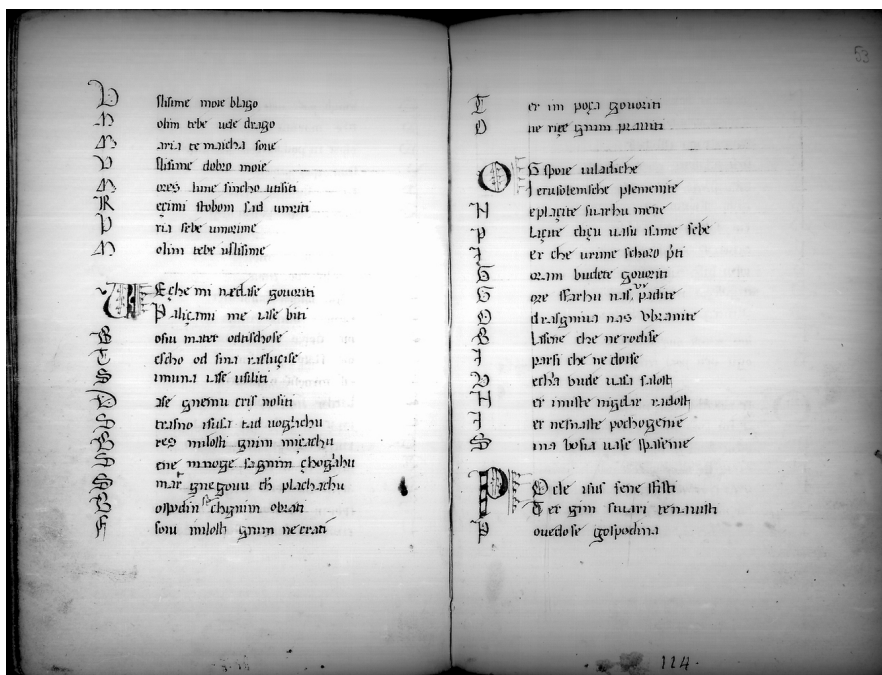 V slisime moie blago
M olim tebe ude drago
M aria te maicha soue
V slisime dobro moie
M ores lime sincho utisiti
R ecimi stobom sad umriti
P ria sebe umorime
M olim tebe uslisime
V Eçhe mi nedase gouoriti
P aliçami me iase biti
B osiu mater odtischose
T escho od sina rasluçise
S imuna iase usiliti
D ase gnemu cris nositi
S trasno isusa tad uogiachu
B res milosti gnim miçachu
S ene mnoge sagnim çhogiahu
S mar gnegouu tih plachachu
G ospodin se chgnim obrati
F souu milosti gnim necrati
53
T er im poça gouoriti
O ne riçe gnim prauiti
O Gospoie uiladiche
Ierusolemsche plemenite
N eplaçite suarhu mene
P laçite diçu uasu isame sebe
I er che urime schoro priti
G oram budete gouoriti
G ore suarhu nas vi padite
O drasgniua nas vbranite
B lasene che nerodise
I parsi che ne doise
V echia bude uasa salost
N er imiste nigdar radosti
I er nesnaste pochogenie
S ina bosia uase spasenie
P Ocle isus sene stisti
Ter gim stuari tenauisti
P ouedose gospodina
124.